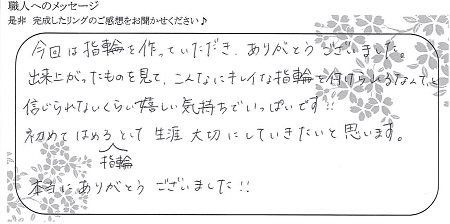 職人へのメッセージ
是非 完成したリングのご感想をお聞かせください♪
今回は指輪を作っていただき、ありがとうございました。
出来上がったものを見て、こんなにキレイな指輪を付けられるなんて、と
信じられないくらい嬉しい気持ちでいっぱいです!!
初めてはめる指輪として 生涯 大切にしていきたいと思います。
本当にありがとうございました!!